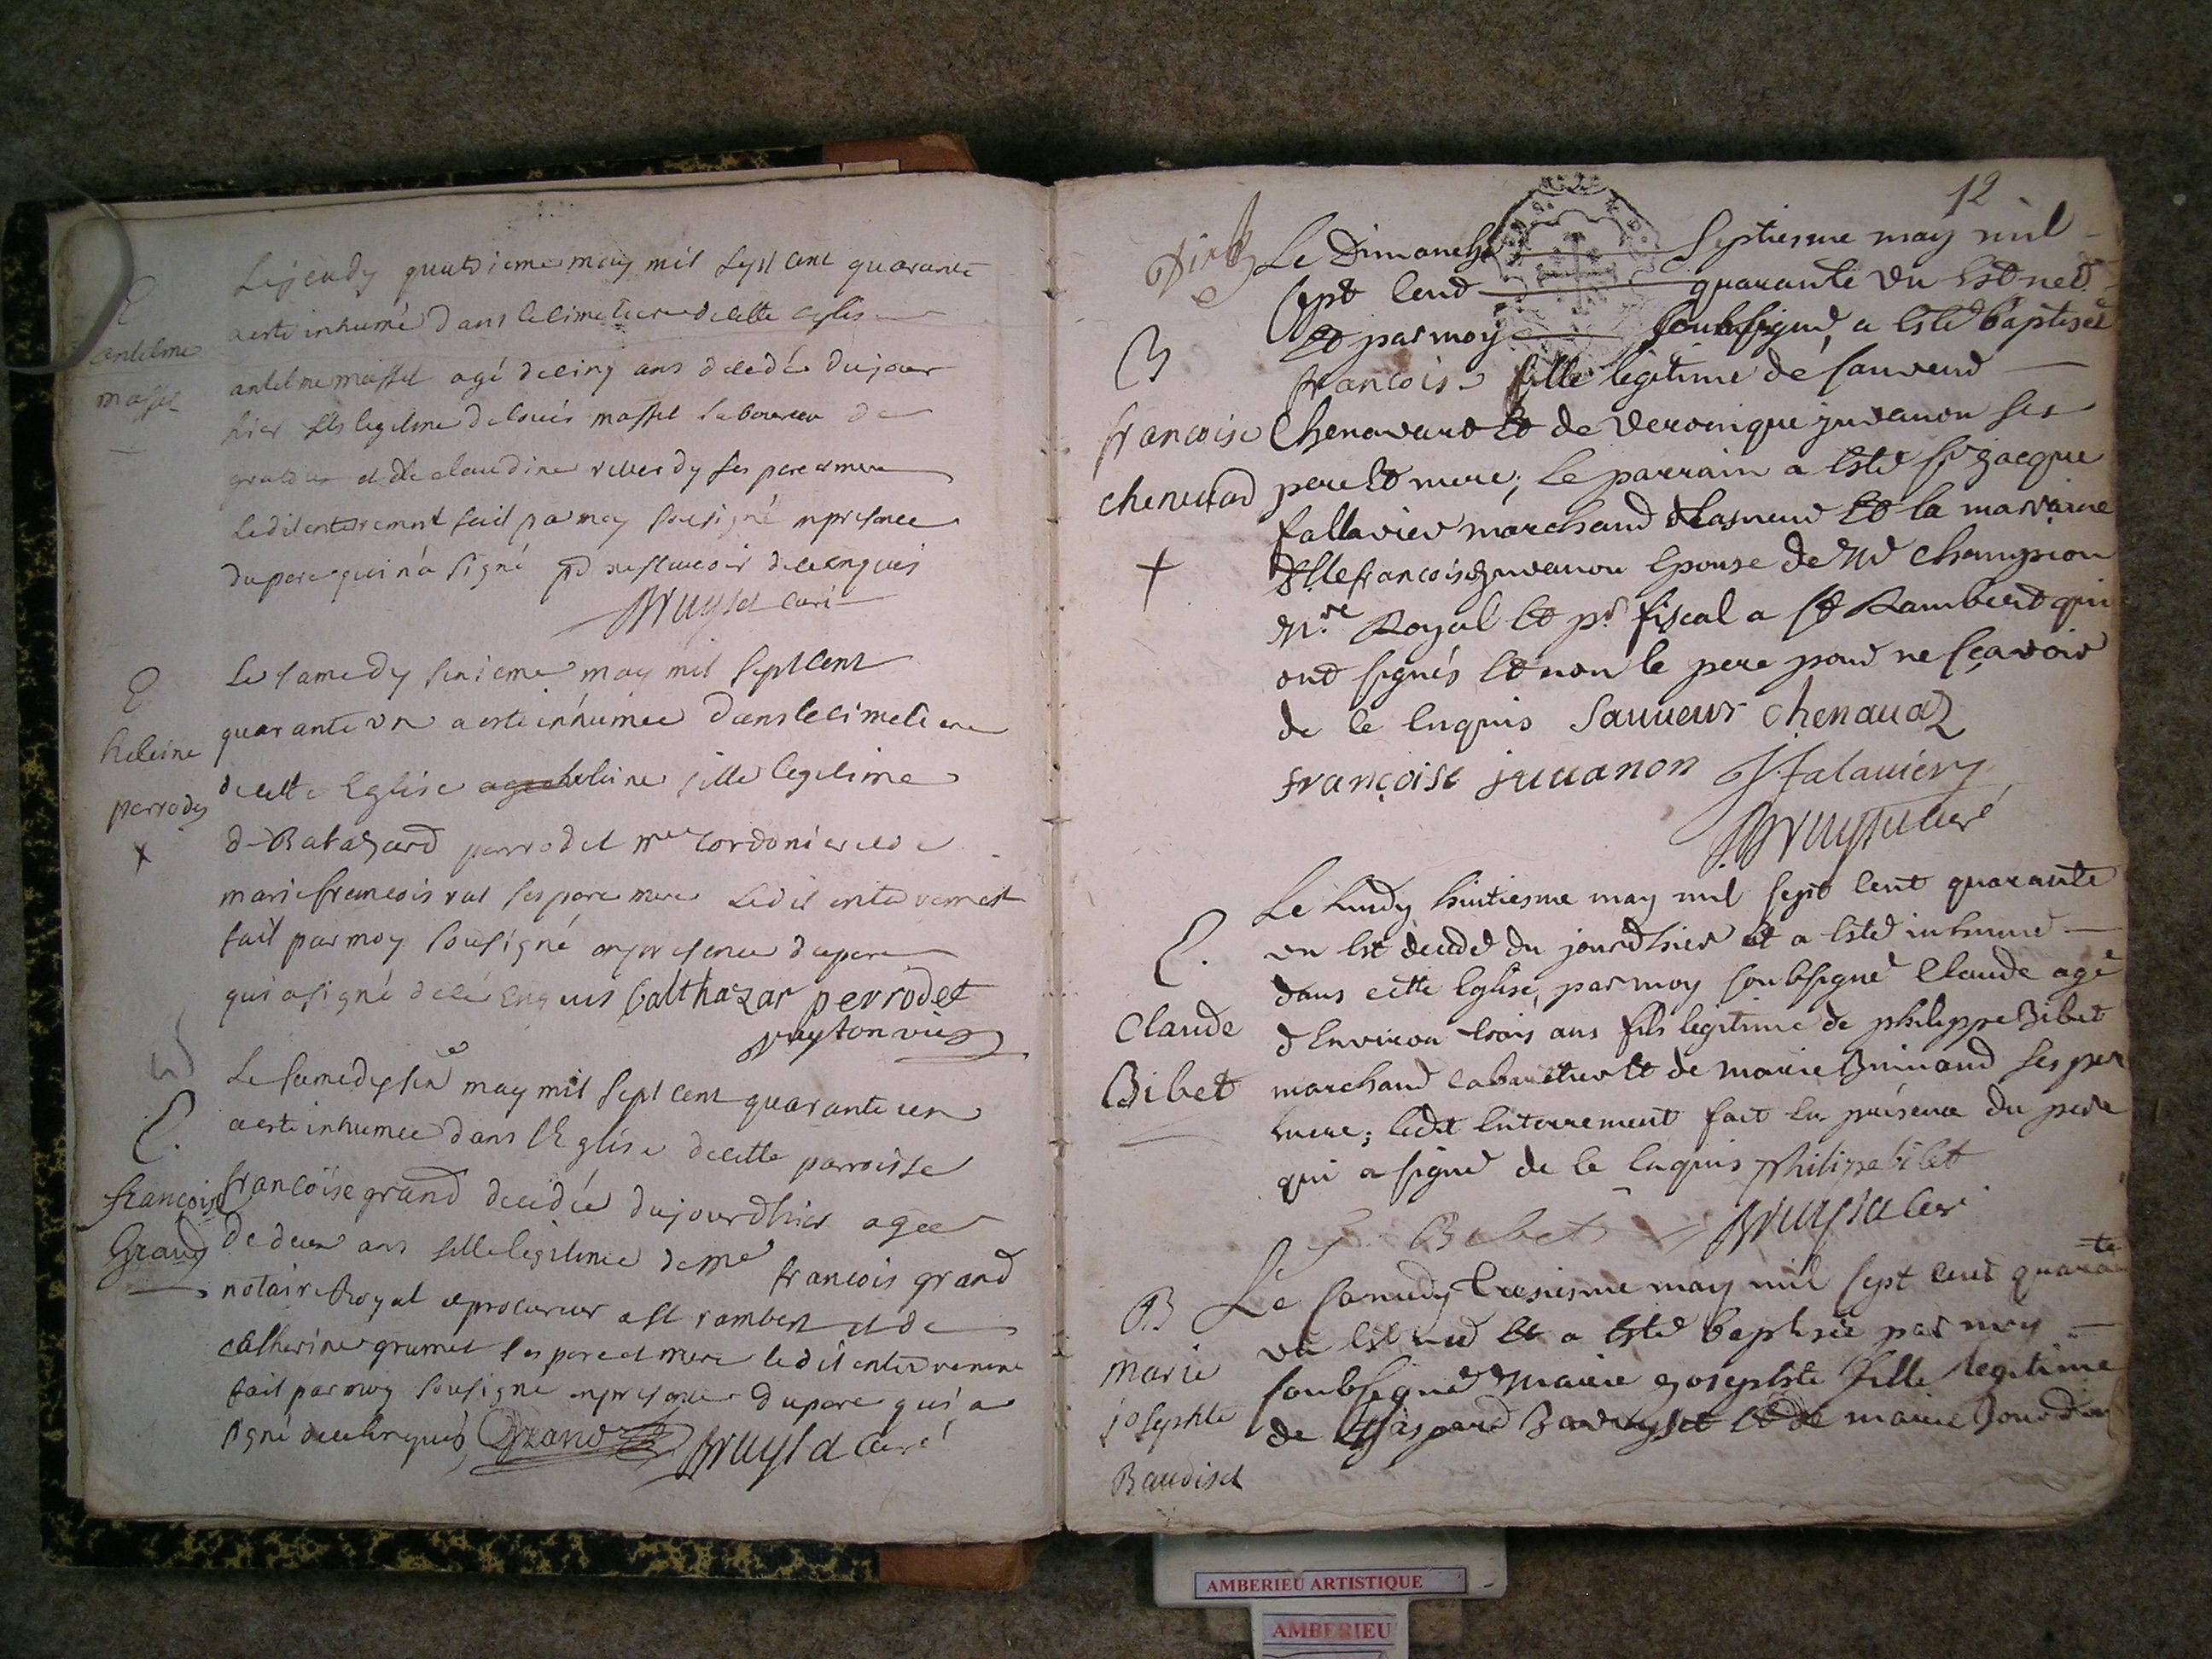 E
antelme
massel
Le jeudy quatrieme may mil sept cent quarante
a esté inhumé dans le cimetiere de cette eglise
antelme massel agé de cinq ans decedé du jour
hier fils legitime de massel laboureur de
et de claudine reverdy ses pere et mere
ledit enterrement fait par moy sousigné en presence
du pere qui n'a signé pr ne scavoir de ce enquis
Bruyset curé
E
heleine
perrodet
x
Le samedy sixieme may mil sept cent
quarante un a esté inhumée dans le cimetiere
de cette Eglise heleine fille legitime
de Batazard perrodet me cordonier et de
marie francoise rat ses pere mere ledit enterrement
fait par moy sousigné en presence du pere
qui a signé de ce enquis balthazar perrodet
E.
françoise
Grand
Le samedy six may mil sept cent quarante un
a esté inhumee dans l'Eglise de cette parroisse
francoise grand decedée du jourdhier agee
de deux ans fille legitime de me francois grand
notaire Royal et procureur a st rambert et de
catherine grumet ses pere et mere ledit enterrement
fait par moy sousigné en presence du pere qui a
signé de ce enquis Grand Bruyset Curé
12
B
francoise
chenavard
+
Le Dimanche septiesme may mil
sept cent quarante un est née
et par moy soubsigné, a esté baptisée
francoise fille legitime de sauveur
Chenavard et de Veronique juvanon ses
pere et mere; le parrain a esté sr jacque
fallavier marchand et la marraine
dlle francoise juvanon epouse de Mr champion
Nre Royal et pr fiscal a st Rambert qui
ont signés et non le pere pour ne sçavoir
de ce enquis sauveur chenavaz
françoise juuanon J. falauier
Bruyset curé
E.
Claude
Bibet
Le Lundy huitiesme may mil sept cent quarante
un est decedé du jourdhier et a esté inhumé
dans cette Eglise, par moy soubsigné Claude agé
d'environ trois ans fils legitime de philippe Bibet
marchand cabaretier et de marie ses per
mere; ledit enterrement fait en présence du pere
qui a signé de ce enquis philipe bibet
Bibet Bruyset curé
B
marie
josephte
Baudiset
Le samedy tresiesme may mil sept cent quarante
un est née et a esté baptisée par moy
soubsigné Marie josephte fille legitime
de Gaspard et de marie Jourdan
AMBERIEU ARTISTIQUE
AMBERIEU